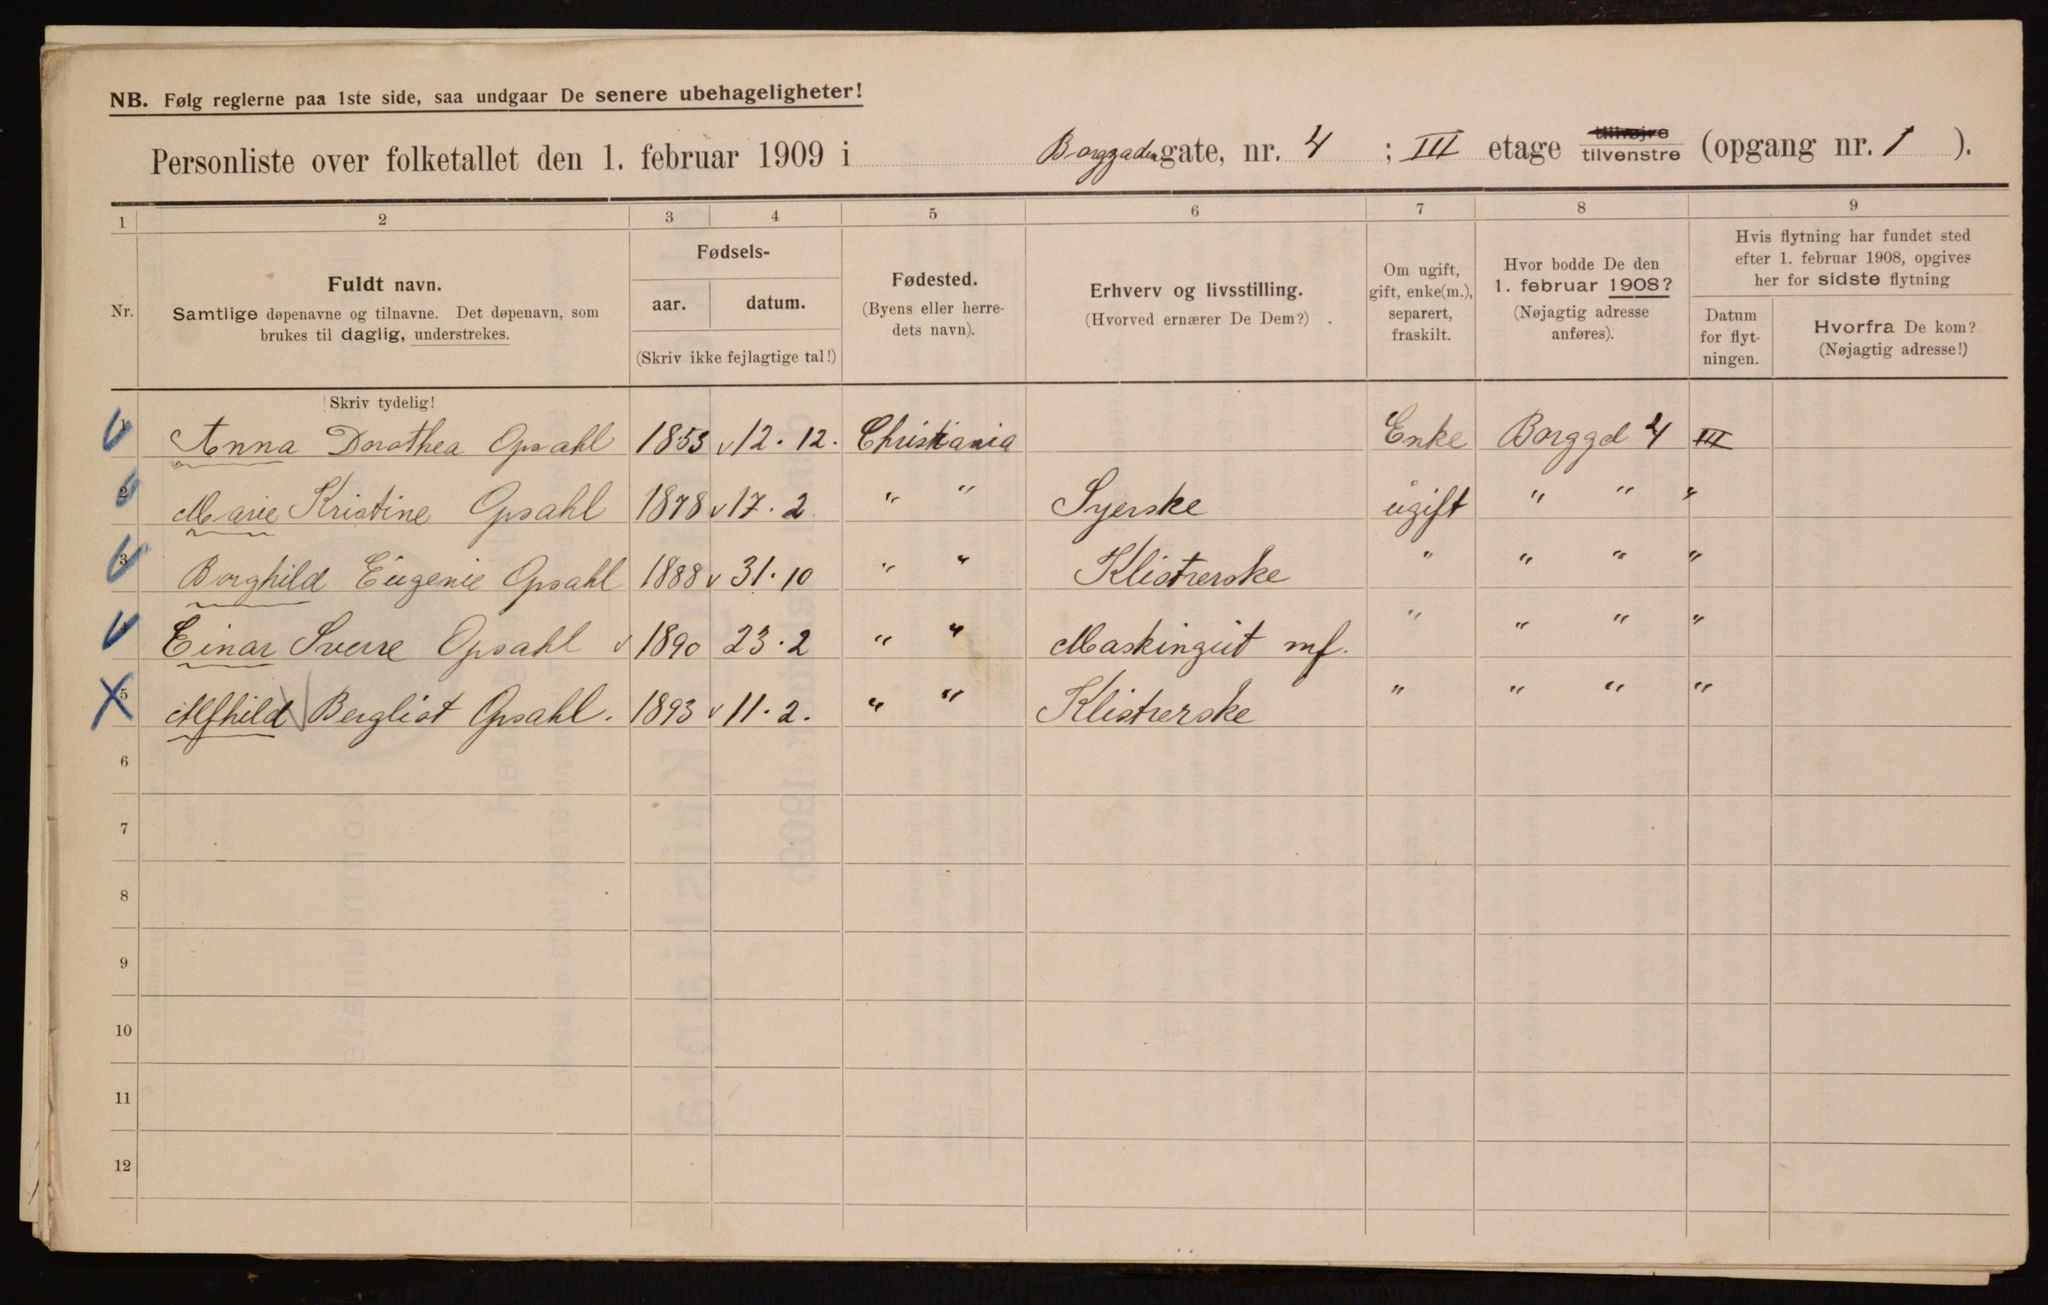 NB. Følg reglerne paa 1ste side, saa undgaar De senere ubehageligheter!
Personliste over folketallet den 1. februar 1909 i Borggaden gate, nr. 4 ; III etage tilhøjre tilvenstre (opgang nr. 1 ).
1 2 3 4 5 6 7 8 9
Nr.
Fuldt navn.
Samtlige døpenavne og tilnavne. Det døpenavn, som
brukes til daglig, understrekes.
Fødsels-
aar. datum.
(Skriv ikke fejlagtige tal!)
Fødested.
(Byens eller herre-
dets navn).
Erhverv og livsstilling.
(Hvorved ernærer De Dem?)
Om ugift,
gift, enke(m.),
separert,
fraskilt.
Hvor bodde De den
1. februar 1908?
(Nøjagtig adresse
anføres).
Hvis flytning har fundet sted
efter 1. februar 1908, opgives
her for sidste flytning
Datum
for flyt-
ningen.
Hvorfra De kom?
(Nøjagtig adresse!)
Skriv tydelig!
1 Anna Dorothea Opsahl 1853 v 12. 12. Christiania Enke Borggd 4 III
2 Marie Kristine Opsahl 1878 v 17. 2 " " Syerske ugift " " "
3 Borghild Eugenie Opsahl 1888 v 31. 10 " " Klistrerske " " " "
4 Einar Sverre Opsahl v 1890 23. 2 " " Maskingut mf. " " " "
5 Alfhild Bergliot Opsahl. 1893 v 11. 2. " " Klistrerske " " " "
6
7
8
9
10
11
12